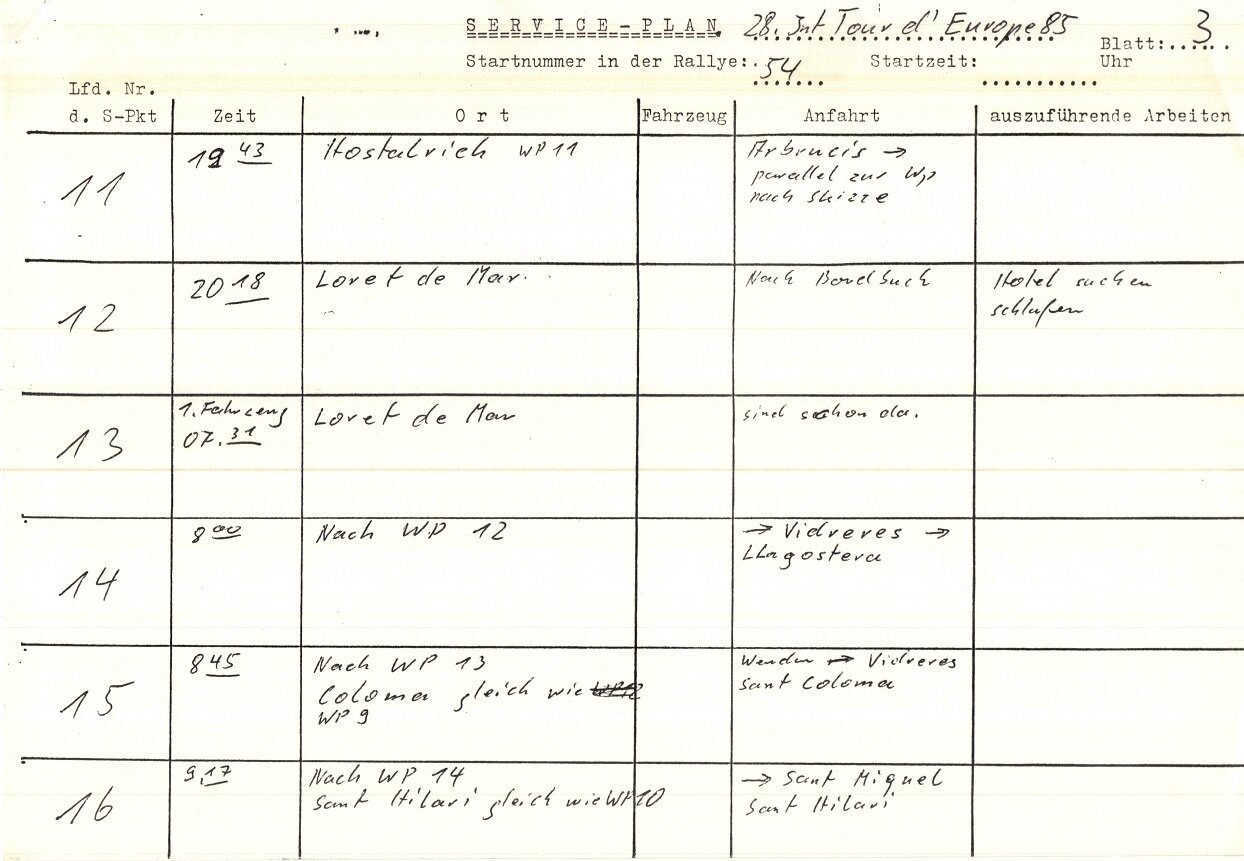 SERVICE-PLAN 28. Int Tour d' Europe 85
Blatt: 3
Startnummer in der Rallye: 54 Startzeit: Uhr
Lfd. Nr.
d. S-Pkt Zeit Ort Fahrzeug Anfahrt auszuführende Arbeiten
11 19 43 Hostalrich WP 11 Arbucis →
parallel zur Wp
nach Skizze
12 20 18 Loret de Mar. Nach Bordbuch Hotel suchen
schlafen
13 1. Fahrzeug Loret de Mar sind schon da.
07.31
14 8 00 Nach WP 12 → Vidreres →
LLagostera
15 8 45 Nach WP 13 Wenden → Vidreres
Coloma gleich wie WP12 Sant Coloma
WP 9
16 9.17 Nach WP 14 → Sant Miquel
Sant Hilari gleich wie WP 10 Sant Hilari